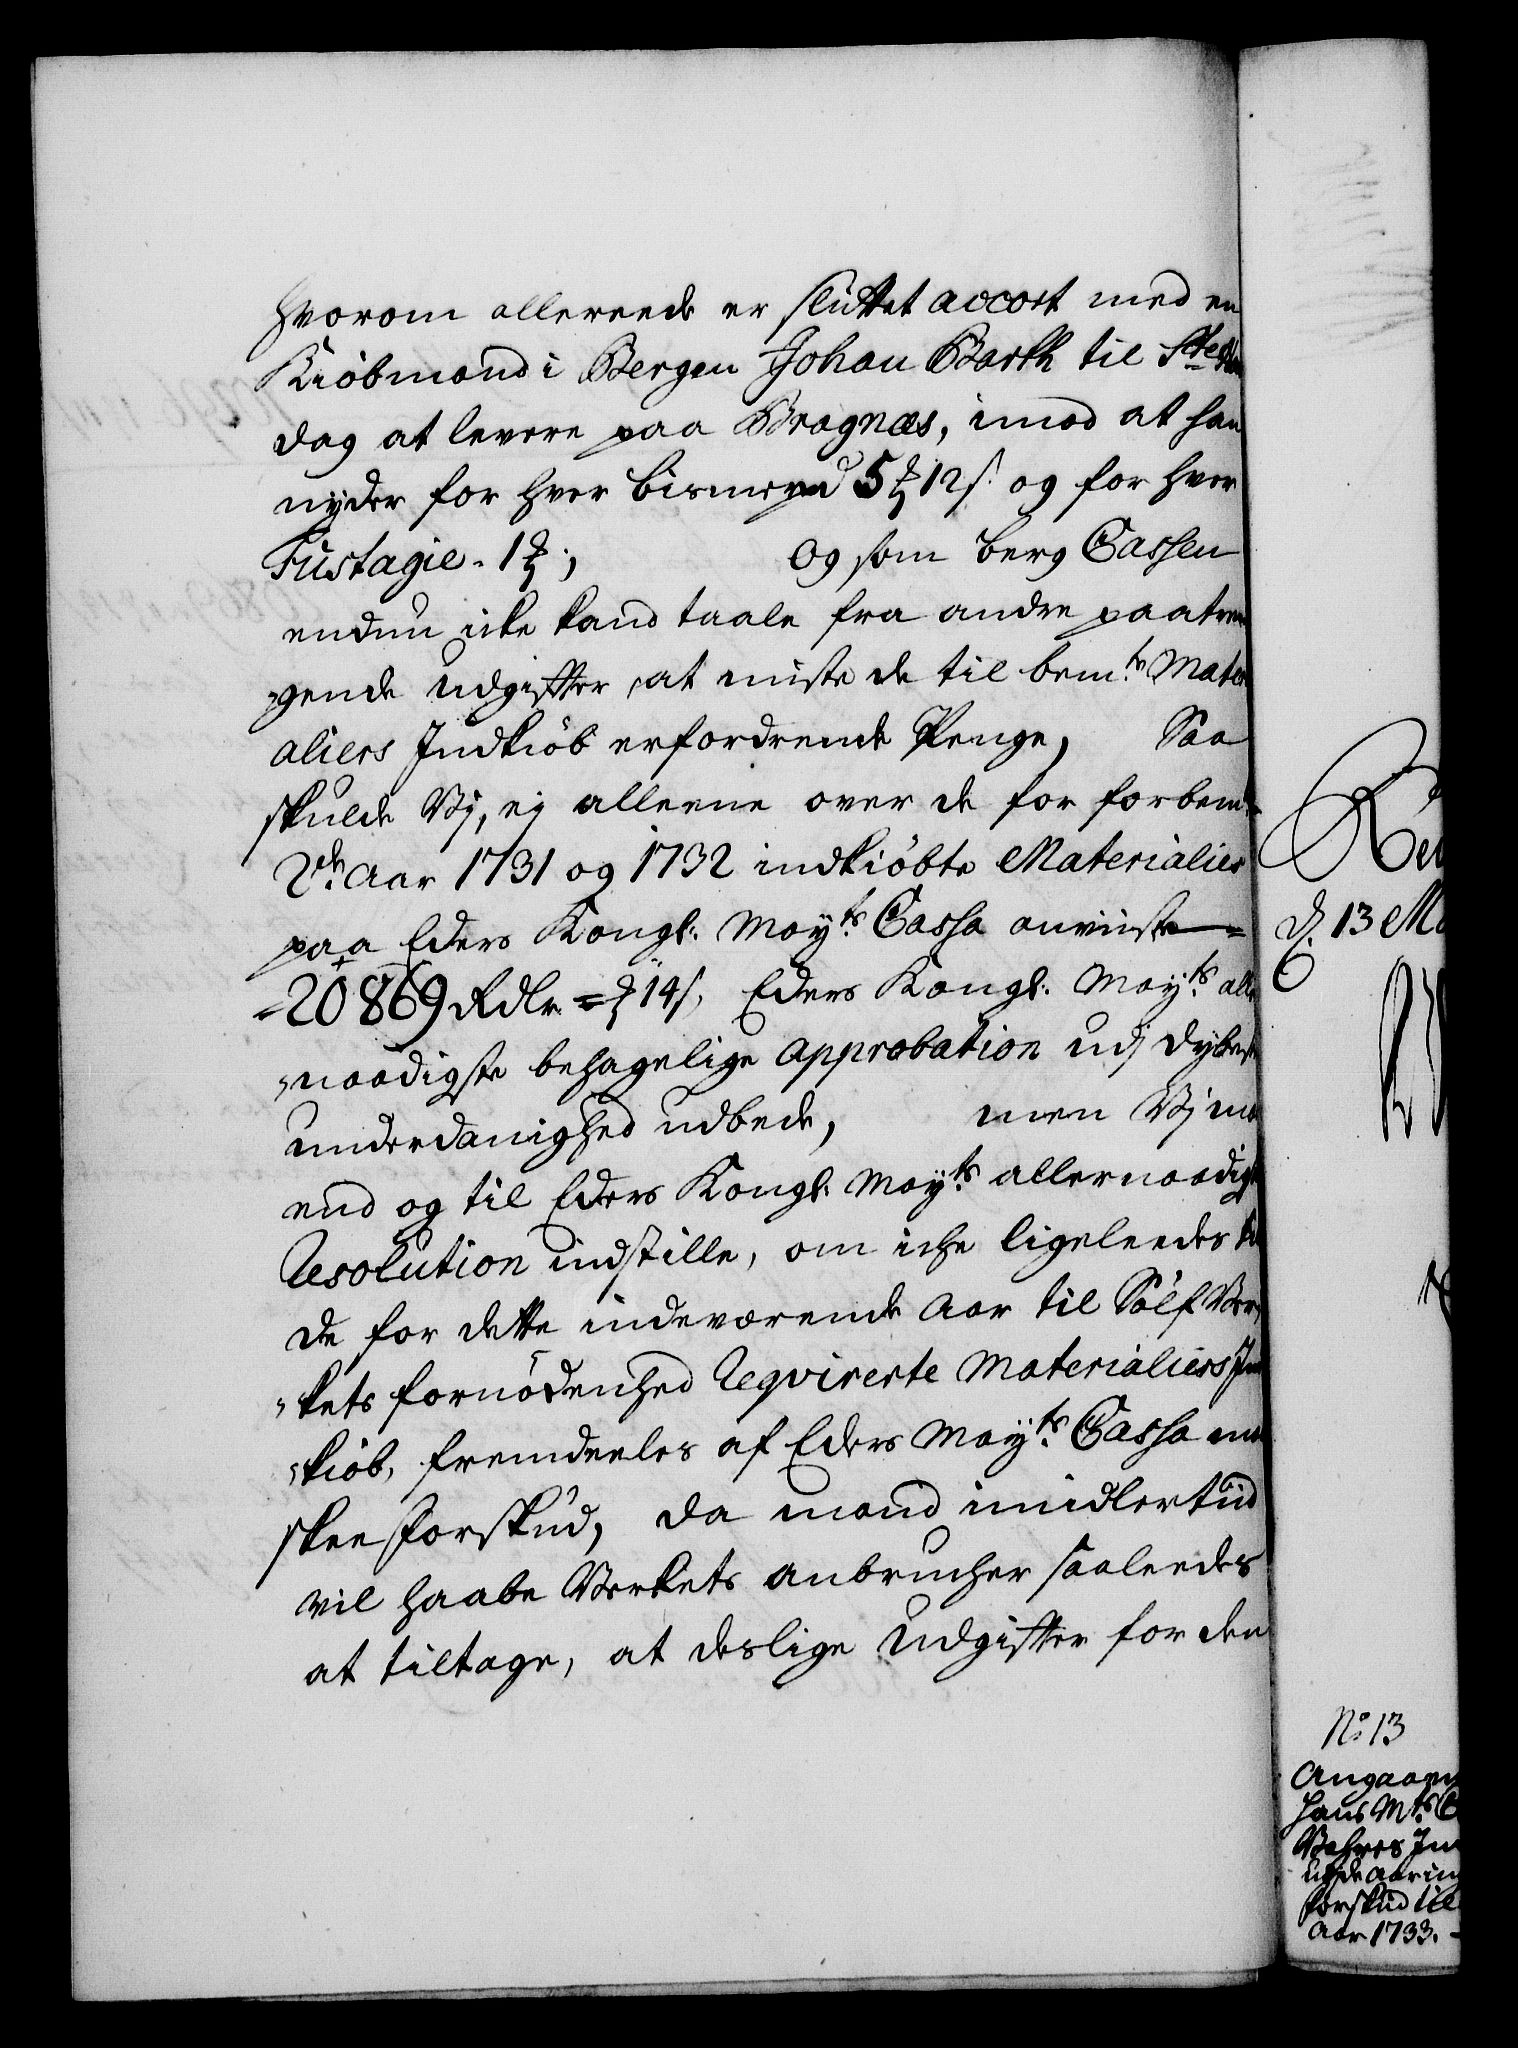 hvorom allereede er sluttet accort med en
Kiöbmand i Bergen Johan Barth til Ste Hans
dag at levere paa Bragnæs, imod at han
nyder for hver bismerpd 5 ꝳ 12 s. og for hver
Fustagie - 1 ꝳ; Og som berg Cassen
endnu icke kand taale fra andre paatren
gende Udgiffter, at miste de til bemte Materi
aliers Indkiöb erfordrende Penge, Saa
skulde Vj, ej alleene over de for forbemte
2de Aar 1731 og 1732 indkiöbte Materialier
paa Eders Kongl: Mayts Cassa anviiste =
= 20869 Rdlr = ꝳ 14 s, Eders Kongl: Mayts aller
naadigste behagelige approbation udj dybeste
underdanighed udbede, men Vj maa
end og til Eders Kongl: Mayts allernaadigste
Resolution indstille, om icke ligeleedes til
de for dette indeværende Aar til Sölf Ver,
"kets fornödenhed Reqvirerte Materialiers Ind
"kiöb, fremdeeles af Eders Mayts Cassa maa
skee forskud, da mand imidlertiid
vil haabe Verkets anbrucher saaleedes
at tiltage, at deslige Udgiffter for den
d. 13 Ma
No: 13
Angaaen
Hans Mts C
Aar 1733. -